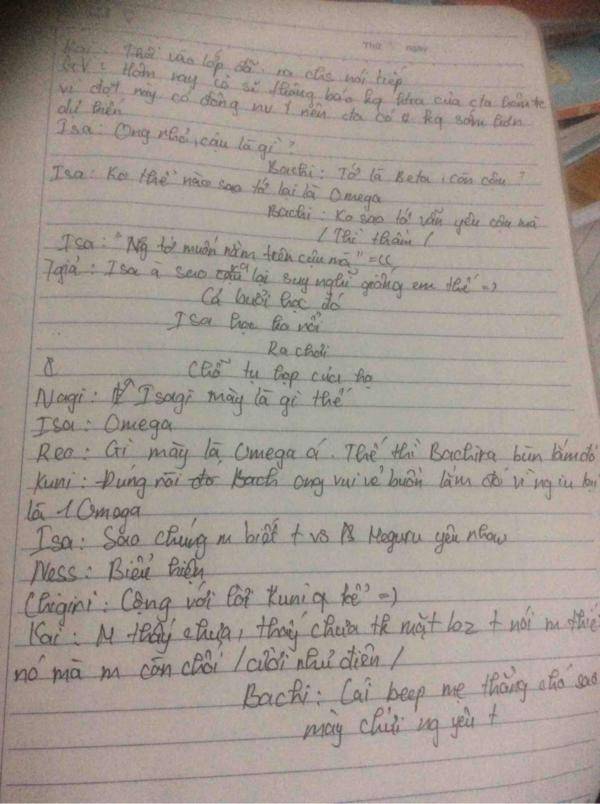 THỨ NGÀY
Kai : Thôi vào lớp đã, ra chs nói tiếp
GV : Hôm nay cô sẽ thông báo kq ktra của cta hôm tr
vì đợt này có đông nv 1 nên cta có kq sớm hơn
dự kiến
Isa : Ong nhỏ, cậu là gì ?
Bachi : Tớ là Beta, còn cậu ?
Isa : Ko thể nào sao tớ lại là Omega
Bachi : Ko sao tớ vẫn yêu cậu mà
/ Thì thầm /
Isa : "Ng tớ muốn nằm trên cậu mà" =((
Tgiả : Isa à sao lại suy nghĩ giống em thế =)
Cả buổi học đó
Isa học ko nổi
Ra chơi
Chỗ tụ họp của họ
Nagi : Isagi mày là gì thế
Isa : Omega
Reo : Gì mày là Omega á. Thế thì Bachira bùn lắm đó
Kuni : Đúng rồi đó Bach ong vui vẻ buồn lắm đó vì ng iu lại
là 1 Omega
Isa : Sao chúng m biết t vs Meguru yêu nhau
Ness : Biểu hiện
Chigiri : Cộng với lời Kuni kể =)
Kai : M thấy chưa, thấy chưa tk mặt loz t nói m thế
nó mà m còn chối / cười như điên /
Bachi : Cái beep mẹ thằng chó sao
mày chửi ng yêu t